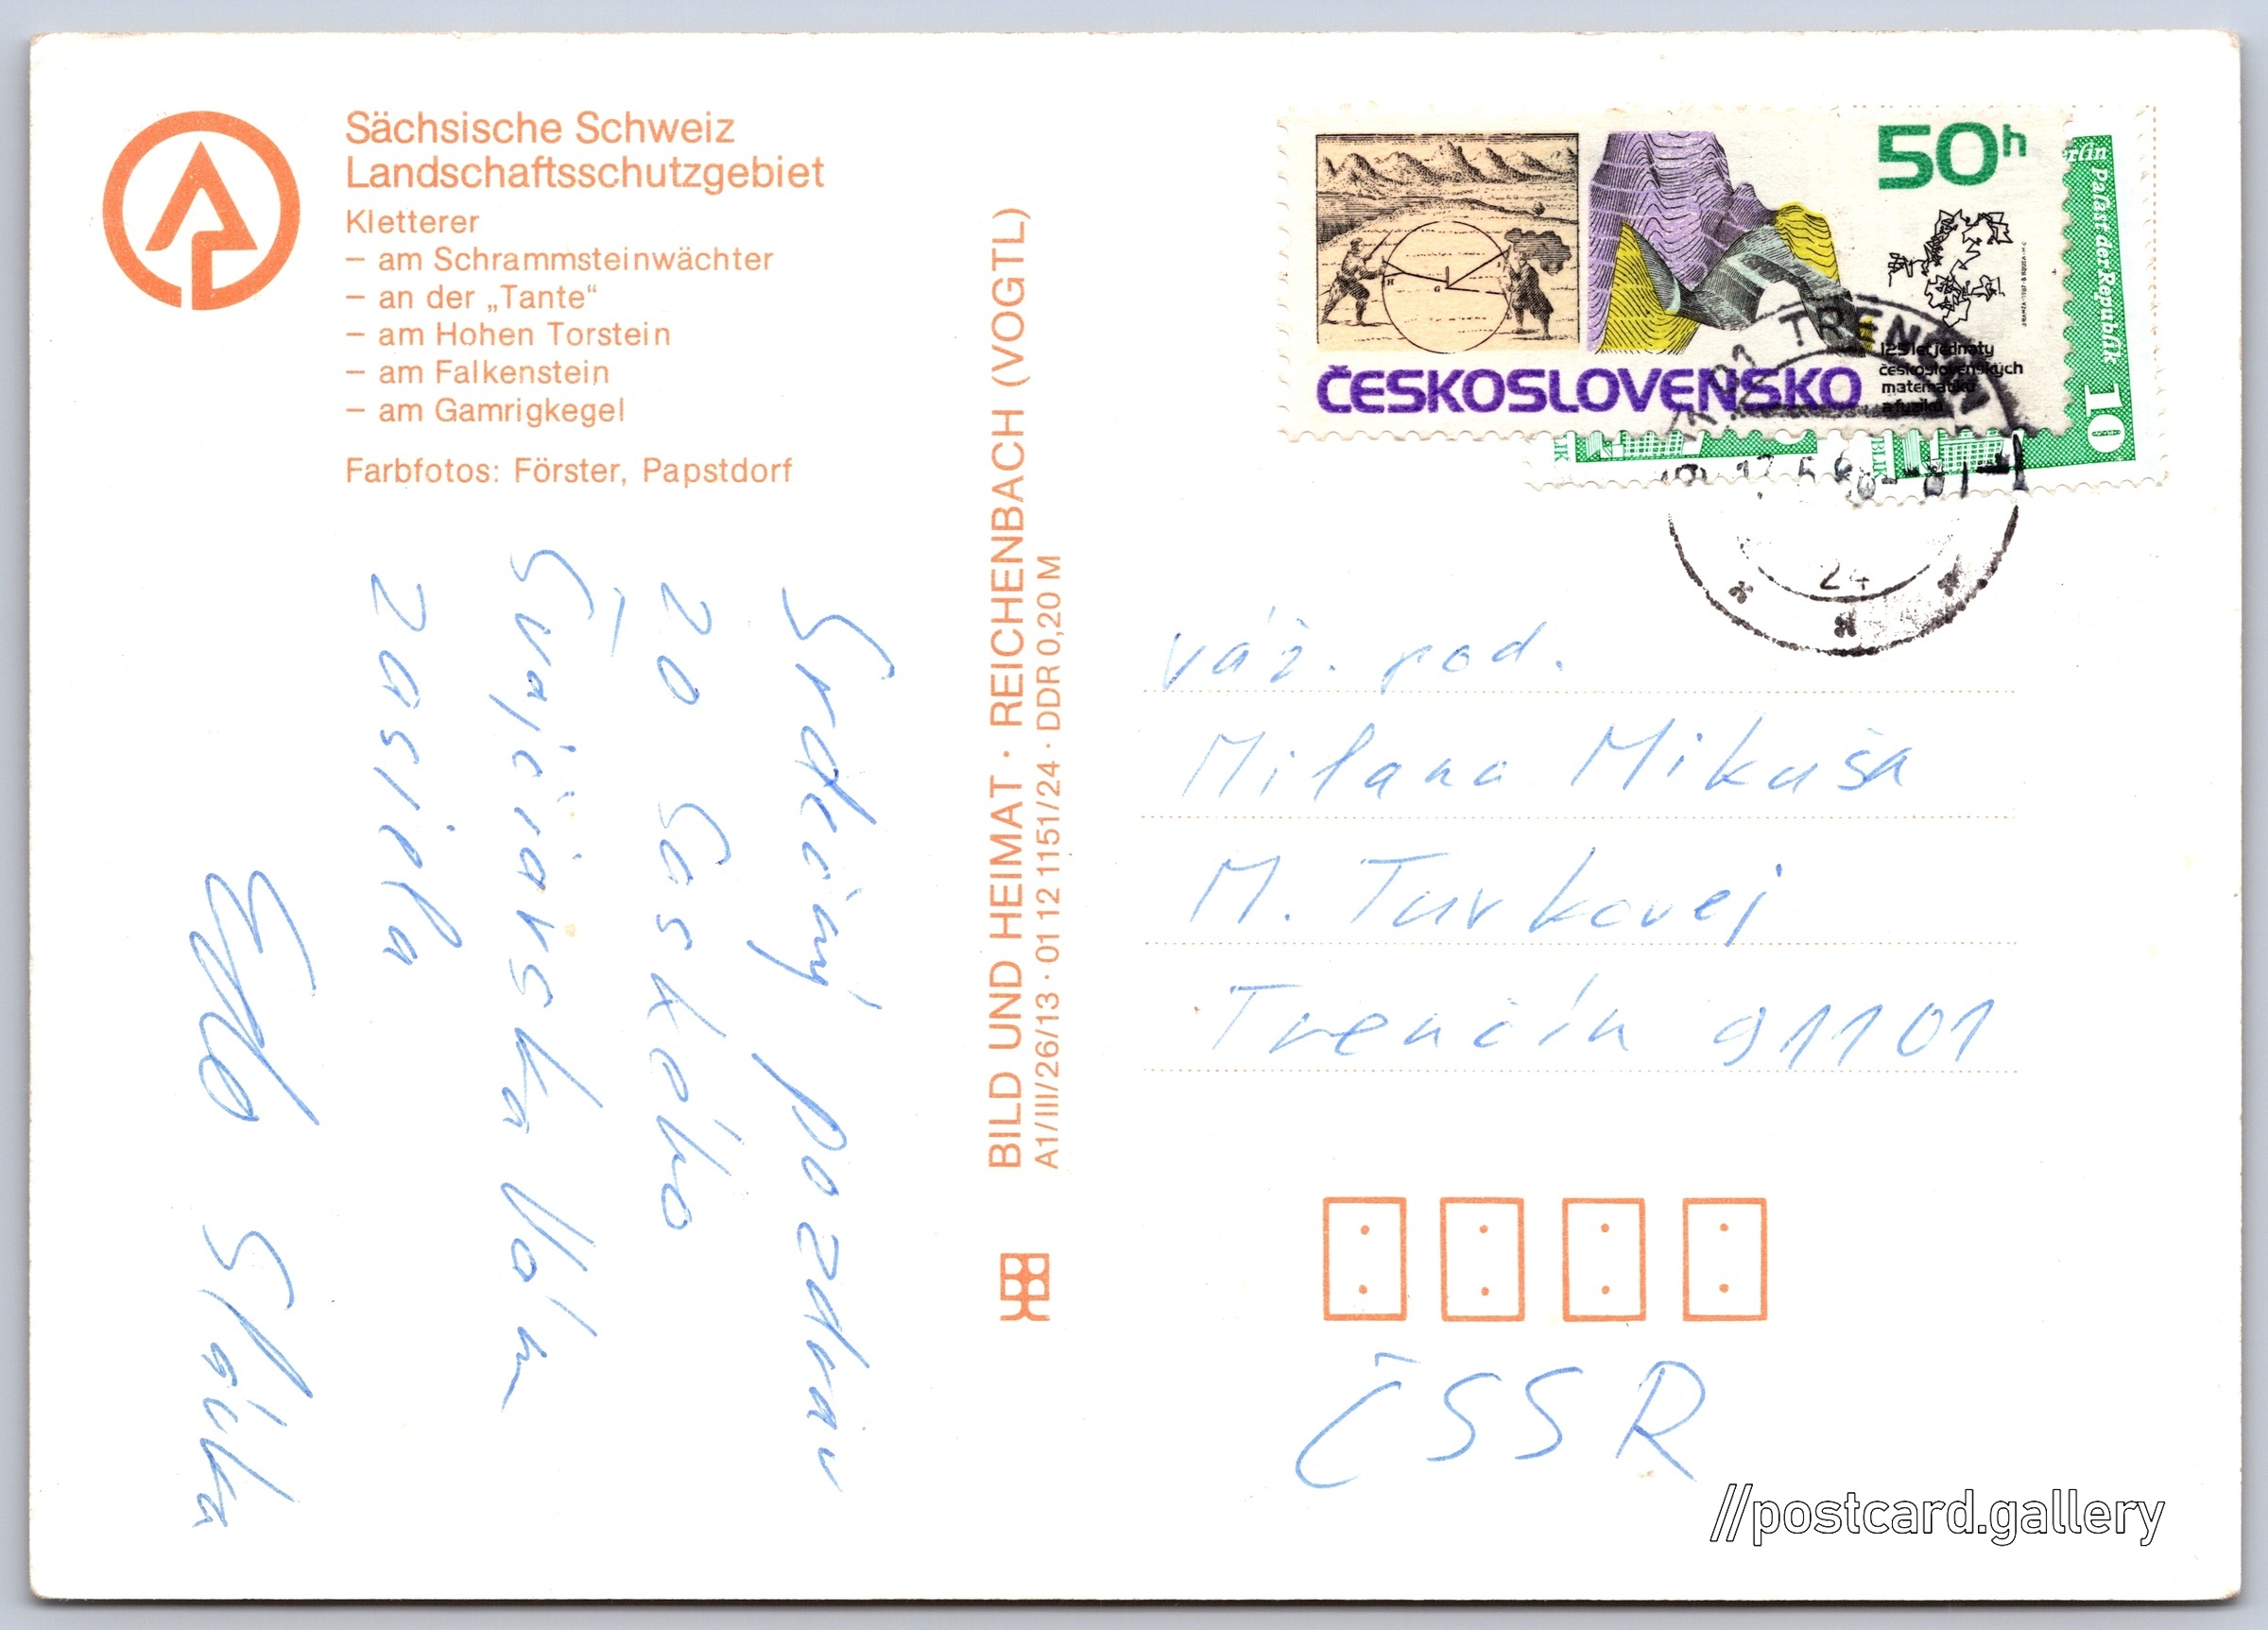 Sächsische Schweiz
Landschaftsschutzgebiet
Kletterer
– am Schrammsteinwächter
– an der „Tante“
– am Hohen Torstein
– am Falkenstein
– am Gamrigkegel
Farbfotos: Förster, Papstdorf
Srdečný pozdrav
zo Saského
Švajčiarska Vám
zasiela
Slávka
BILD UND HEIMAT · REICHENBACH (VOGTL)
A1/III/26/13 · 01 12 1151/24 · DDR 0,20 M
50h
125 let jednoty
československých
matematiků
a fyziků
ČESKOSLOVENSKO
Palast der Republik
10
24
váž. rod.
Milana Mikuša
M. Turkovej
Trenčín 91101
ČSSR
//postcard.gallery